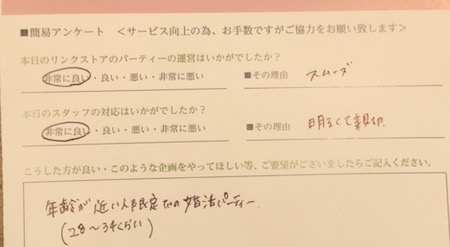 ■簡易アンケート ＜サービス向上の為、お手数ですがご協力をお願い致します＞
本日のリンクストアのパーティーの運営はいかがでしたか？
非常に良い・良い・悪い・非常に悪い ■その理由 スムーズ
本日のスタッフの対応はいかがでしたか？
非常に良い・良い・悪い・非常に悪い ■その理由 明るくて親切
こうした方が良い・このような企画をやってほしい等、ご要望がございましたらご記入ください。
年齢が近い人限定での婚活パーティー
(28～34くらい)